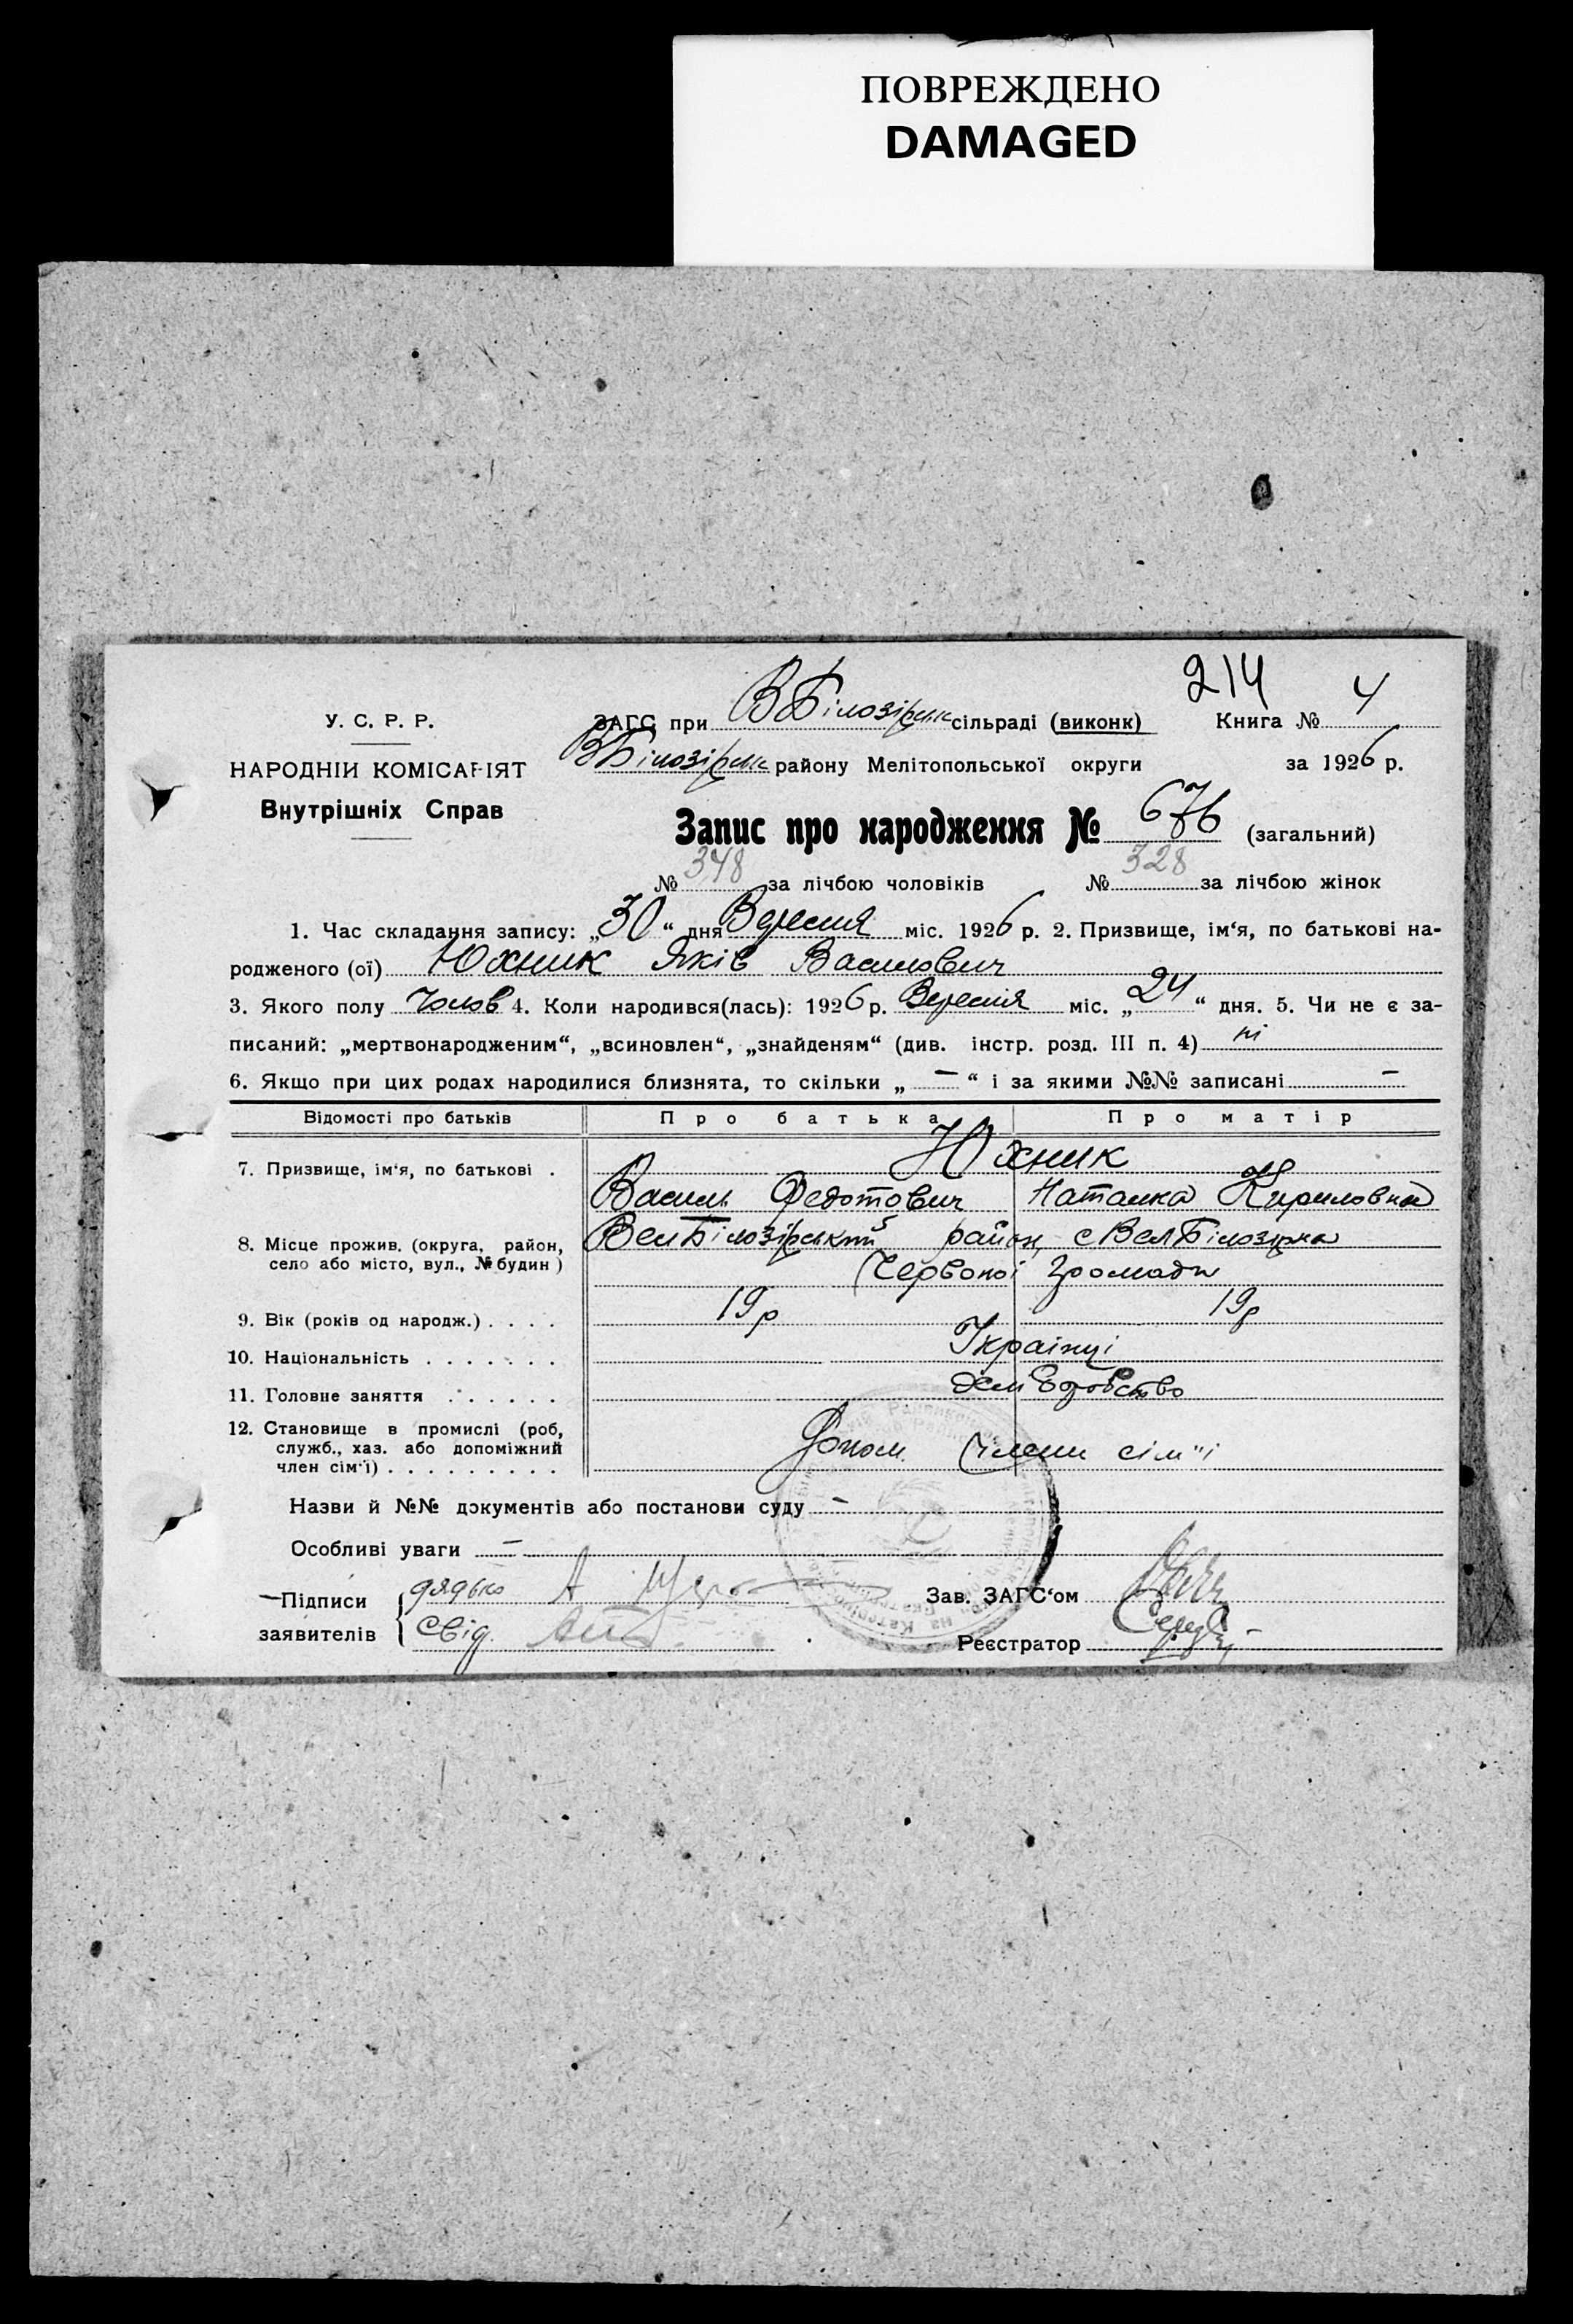 ПОВРЕЖДЕНО
DAMAGED
214
У. С. Р. Р.
ЗАГС при ВБілозірськ сільраді (виконк) Книга № 4
НАРОДНІЙ КОМІСАРІЯТ
ВБілозірськ району Мелітопольської округи за 1926 р.
Внутрішніх Справ
Запис про народження № 676 (загальний)
№ 348 за лічбою чоловіків № 328 за лічбою жінок
1. Час складання запису: „30“ дня Вересня міс. 1926 р. 2. Призвище, ім‘я, по батькові на-
родженого (ої) Юхник Яків Василович
3. Якого полу Чолов 4. Коли народився(лась): 1926 р. Вересня міс. „24“ дня. 5. Чи не є за-
писаний: „мертвонародженим“, „всиновлен“, „знайденям“ (див. інстр. розд. III п. 4) ні
6. Якщо при цих родах народилися близнята, то скільки „ — “ і за якими №№ записані —
Відомості про батьків Про батька Про матір
7. Призвище, ім‘я, по батькові . Юхник
Василь Федотович Наталка Кириловна
8. Місце прожив. (округа, район, село або місто, вул., № будин) ВелБілозірський район, с ВелБілозірка
Червоної Громади
9. Вік (років од народж.) . . . . 19р 19р
10. Національність . . . . . . . Українці
11. Головне заняття . . . . . . хліборобство
12. Становище в промислі (роб, служб., хаз. або допоміжний член сім‘ї) . . . . . . . . . Допом. члени сім"ї
Назви й №№ документів або постанови суду —
Особливі уваги —
Підписи заявителів дядько А
Свід.
Зав. ЗАГС‘ом
Реєстратор